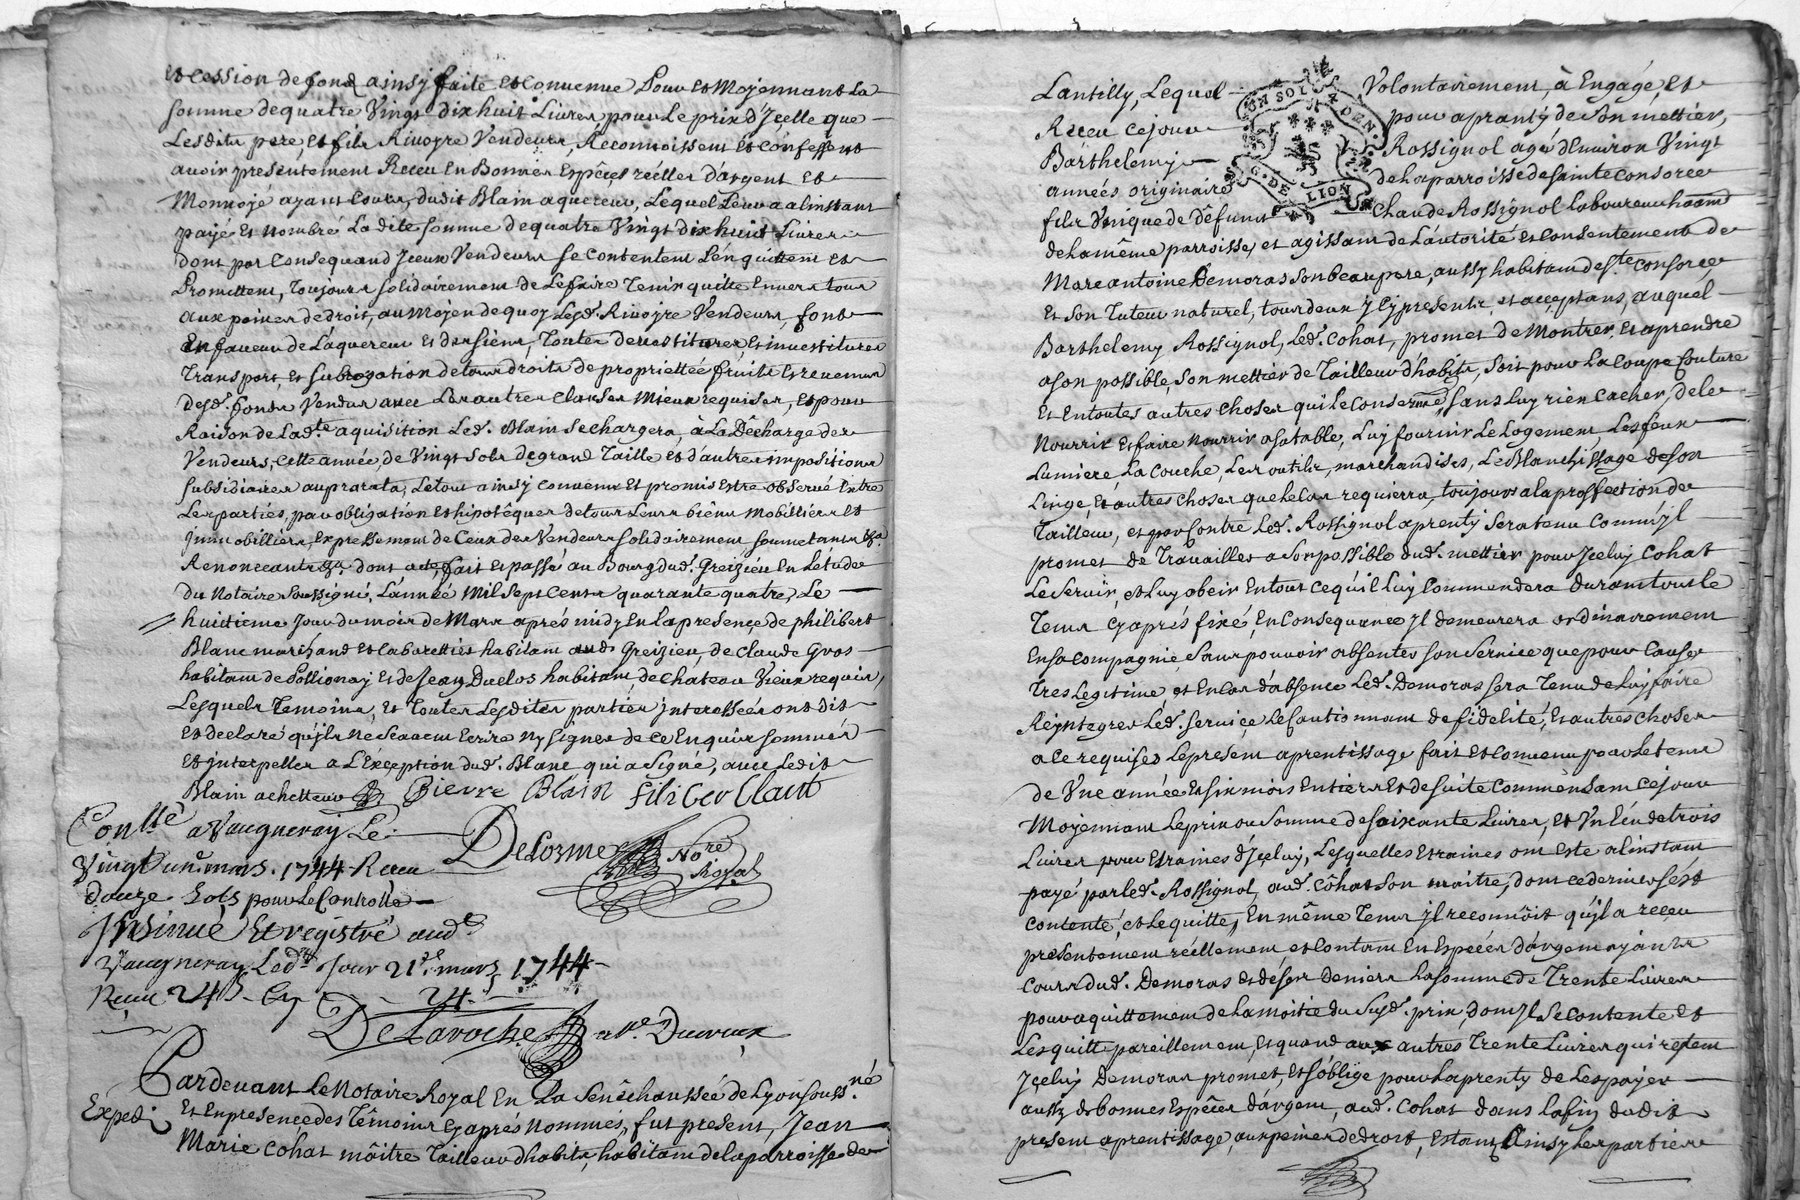 et cession de fond ainsy faite et convenue Pour et Moyennant La
somme de quatre Vingt dix huit Livres, pour Le prix d'Jcelle que
Lesdits pere, et fils Rivoyre Vendeurs, Reconnoissent et confessent
avoir presentement Receu En Bonnes Espêces réelles d'argent et
Monnoyé ayant Cours, dudit Blain aquereur, Lequel Leur a a linstant
payé et Nombré Ladite somme de quatre Vingt dix huit Livres
dont par Consequand Jceux Vendeurs se contentent L'en quittent et
Promettent, Toujours solidairement de Le faire Tenir quitte Envers tous
aux peines de droit, au Moyen de quoy Lesd. Rivoyre Vendeurs, font
En faveur de L'aquereur et des siens, Toutes devestitures, et investitures
Transport et subrogation de tous droits de propriettée fruits et revenus
desd. fonds Vendus avec Les autres clauses Mieux requises, et pour
Raison de Lad.te aquisition Led. Blain se chargera, à La Décharge des
Vendeurs, cette année, de Vingt sols de grand Taille et d'autres impositions
subsidiaires au prorata, Le tout ainsy convenu et promis Estre observé Entre
Les parties, par obligation et hipotêque de tous Leurs biens Mobilliers et
immobilliers, Expressement de Ceux des Vendeurs solidairement, soumettants &a.
Renonceants &a, dont acte, fait et passé au Bourg dud. Greizieu En L'étude
du Notaire soussigné, L'année Mil sept Cents quarante quatre, Le
huitieme Jour du mois de Mars après midy En La presence de philibert
Blanc marchand et Cabarettier habitant aud. Greizieu, de Claude Gros
habitant de Pollionay et de Jean Duclos habitant de chateau Vieux requis,
Lesquels Temoins, et Toutes Lesdites parties interessées ont dit
et declaré qu'ils ne sçavent Ecrire ny signer de ce Enquis sommés
et interpellés a L'Exception dud. Blanc qui a signé, avec Ledit
Blain achetteur
Pierre Blain filiber Claut
Conllé a Vaugneray Le
Vingt un mars. 1744 Receu
douze sols pour Le Controlle
Delorme Nore Royal
Insinué Et registré aud.
Vaugneray Led. Jour 21e. mars 1744
Receu 24 s. Cy 24 s
De Laroche
Pardevant Le Notaire Royal En La Senêchaussée de Lyon souss.né
Exped.
et En presence des Têmoins Cy aprés Nommés, fut present, Jean
Marie Cohat môitre Tailleur d'habits, habitant de la parroisse de
Lantilly, Lequel Volontairement, à Engagé, et
Receu ce jour pour aprantÿ de son mettier,
Barthelemy Rossignol agé d'Environ Vingt
années originaire de La parroisse de sainte Consorce
fils Unique de Défunt Claude Rossignol Laboureur habitant
UN SOL X DEN.
G. DE LION
de La même parroisse, et agissant de L'autorité et consentement de
Marc antoine Demoras son Beau pere, aussy habitant de ste. Consorce
et son Tuteur naturel, tous deux Jcy presents, et acceptans, auquel
Barthelemy Rossignol, Led. Cohat, promet de Montrer, et aprendre
a son possible, son mettier de Tailleur d'habits, soit pour La Coupe Couture
et En toutes autres choses qui Le Concerne, sans Luy rien Cacher, de le
Nourrir et faire Nourrir a sa table, Luy fournir Le Logement, Les feux
Lumiere, La Couche, Les outils, marchandises, Le Blanchissage de son
Linge, et autres choses que le Cas requierra, toujours a La proffection de
Tailleur, et par Contre Led. Rossignol aprenty sera tenu Comm'jl
promet de Travailler a son possible dud. mettier pour Jceluy Cohat
Le servir, et Luy obeir En tout ce qu'il Luy Commendera Durant tout Le
Tems cy aprés fixé, En Consequance Jl demeurera ordinairement
En sa Compagnie sans pouvoir absenter son service que pour Cause
Tres Legitime, et En Cas d'absence Led. Demoras sera Tenu de Luy faire
Reintegrer Led. service Le Cautionnant de fidelité, et autres choses
a ce requises Le present aprentissage fait et Convenu pour Le tems
de Une année et six mois Entiers et de suite Commençant ce jour
Moyennant Le prix ou somme de soixante Livres, et Un Ecu de trois
Livres pour Etraines d'Jceluy, Lesquelles Etraines ont Este a linstant
payé par Led. Rossignol, aud. Côhat son maitre, dont ce dernier s'est
Contenté, et Le quitte, En même Tems Jl reconnoit qu'jl a receu
presentement réellement et Contant En Espéces d'argent ayants
Cours dud. Demoras et de ses deniers La somme de Trente Livres
pour aquittement de La moitie du Susd. prix, dont Jl se Contente et
L'es quitte pareillement, et quand aux autres Trente Livres qui restent
Jceluy Demoras promet, et s'oblige pour Laprenty de Les payer
aussy de bonnes Espêces d'argent, aud. Cohat dans La fin du dit
present aprentissage, aux peines de droit, Estant Ainsy Les parties